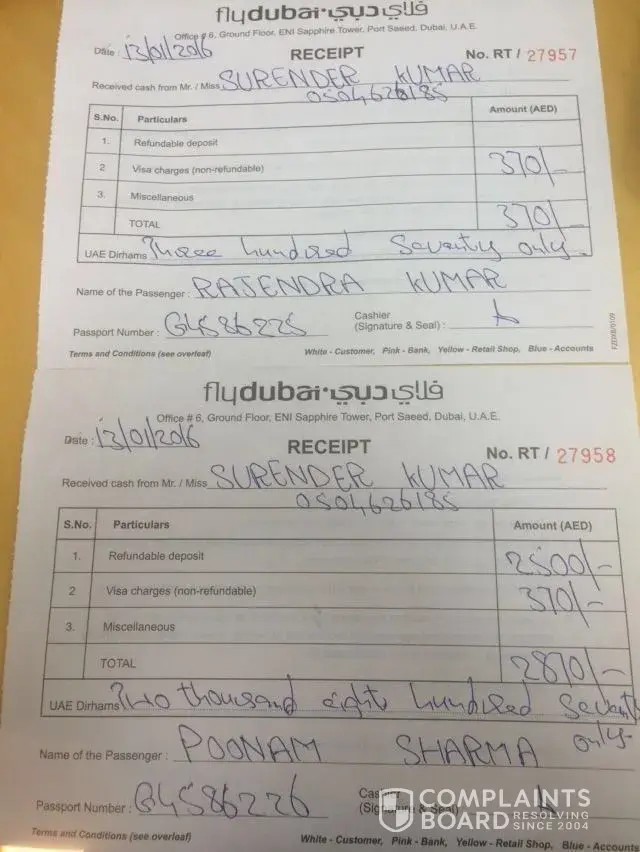 flydubai فلاي دبي
Office # 6, Ground Floor, ENI Sapphire Tower, Port Saeed, Dubai, U.A.E.
Date : 13/01/2016
RECEIPT
No. RT / 27957
Received cash from Mr. / Miss SURENDER KUMAR
0504626185
S.No. Particulars Amount (AED)
1. Refundable deposit
2 Visa charges (non-refundable) 370/-
3. Miscellaneous
TOTAL 370/-
UAE Dirhams Three hundred Seventy only.
Name of the Passenger : RAJENDRA KUMAR
Passport Number : G4586225
Cashier
(Signature & Seal) :
Terms and Conditions (see overleaf) White - Customer, Pink - Bank, Yellow - Retail Shop, Blue - Accounts
flydubai فلاي دبي
Office # 6, Ground Floor, ENI Sapphire Tower, Port Saeed, Dubai, U.A.E.
Date : 13/01/2016
RECEIPT
No. RT / 27958
Received cash from Mr. / Miss SURENDER KUMAR
0504626185
S.No. Particulars Amount (AED)
1. Refundable deposit 2500/-
2 Visa charges (non-refundable) 370/-
3. Miscellaneous
TOTAL 2870/-
UAE Dirhams Two thousand eight hundred Seventy
only.
Name of the Passenger : POONAM SHARMA
Passport Number : G4586226
Cashier
(Signature & Seal)
Terms and Conditions (see overleaf) White - Customer, Pink - Bank, Yellow - Retail Shop, Blue - Accounts
COMPLAINTS
BOARD RESOLVING
SINCE 2004